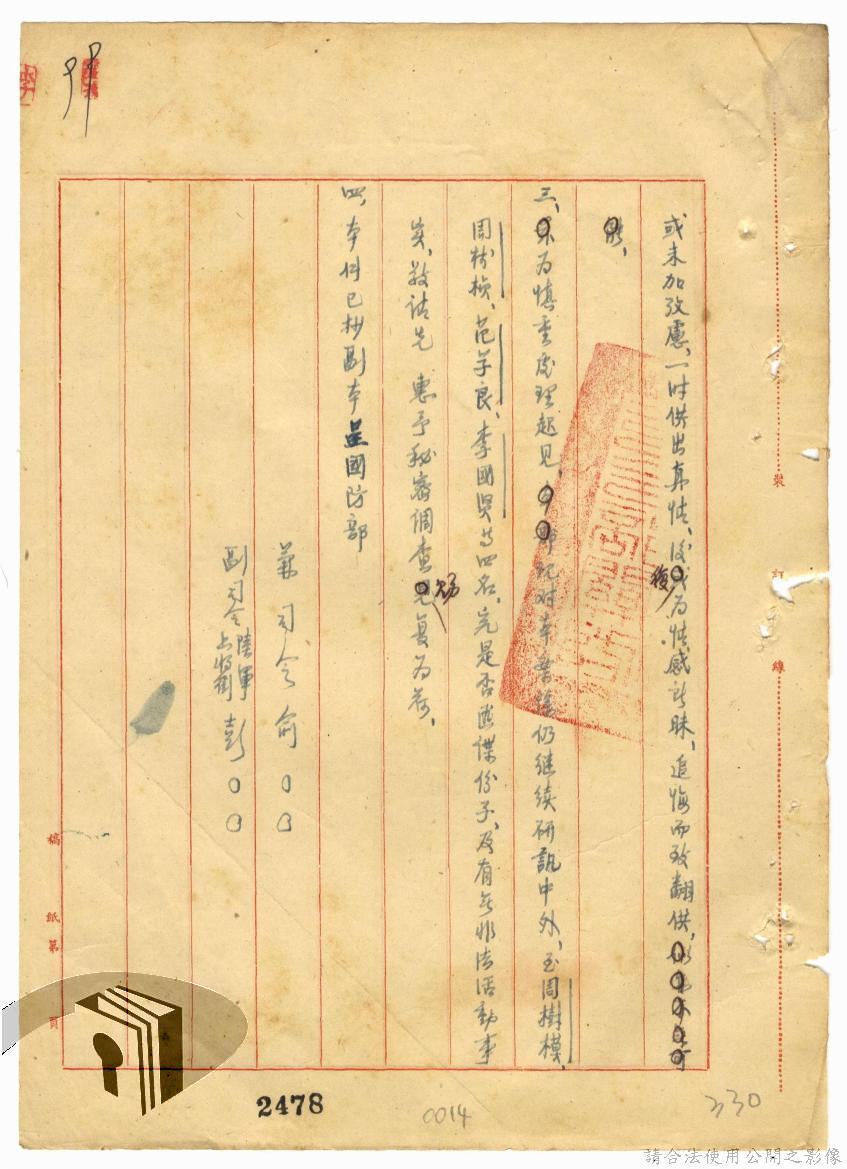 或未加攷慮、一时供出真情、後或为情感所昧、追悔而致翻供、
能、
三、为慎重处理起见、对本案仍继续研訊中外、至周樹模、
周樹楨、范学良、李國興等四名、究是否匪諜份子、及有无非法活動事
实、敬請先 惠予秘密調查見復为荷、
賜
復
四、本件已抄副本呈國防部
兼司令俞○○
副司令陸軍上將彭○○
裝
訂
線
稿
紙
第
頁
2478
0014
330
請合法使用公開之影像